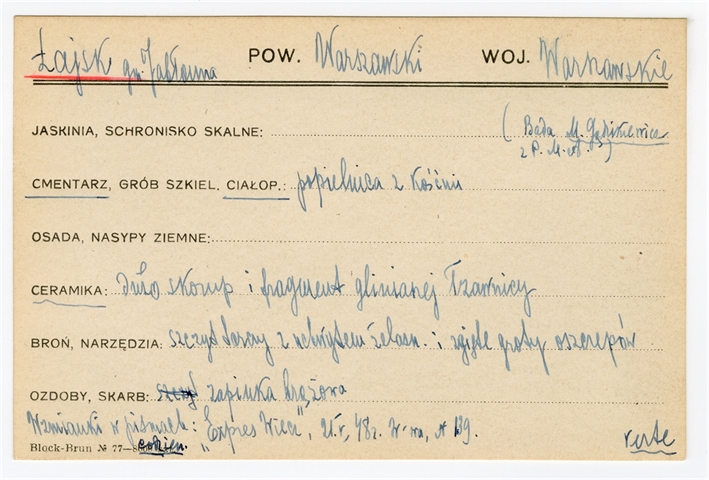 Łajsk gm. Jabłonna POW. Warszawski WOJ. Warszawskie
JASKINIA, SCHRONISKO SKALNE: (Bada M. Gądzikiewicz
z P. M. )
CMENTARZ, GRÓB SZKIEL. CIAŁOP.: popielnica z kośćmi
OSADA, NASYPY ZIEMNE:
CERAMIKA: dużo skorup i fragment glinianej Łzawnicy
BROŃ, NARZĘDZIA: szczyt tarczy z uchwytem żelazn. i zgięte groty oszczepów
OZDOBY, SKARB: zapinka brązowa
Wzmianki w pismach: "Expres Wiecz", 21.V.48 r. W-wa, № 139.
Block-Brun № 77— codzien. verte